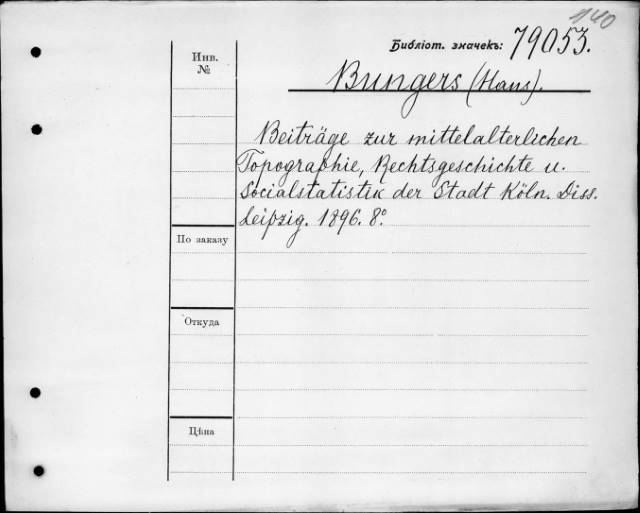 140
Библіот. значекъ: 79053.
Инв.
№
Bungers (Hans).
Beiträge zur mittelalterlichen
Topographie, Rechtsgeschichte u.
Socialstatistik der Stadt Köln. Diss.
Leipzig. 1896. 8º
По заказу
Откуда
Цѣна